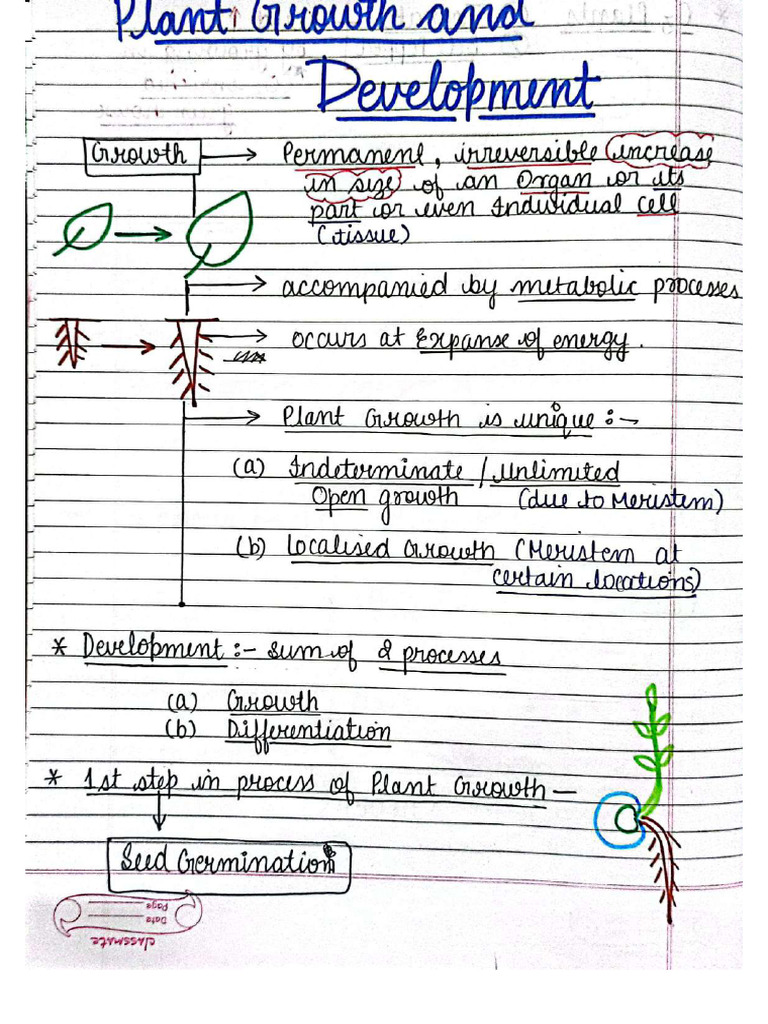 Plant Growth and
Development
Growth → Permanent, irreversible increase
in size of an Organ or its
part or even Individual cell
(tissue)
→ accompanied by metabolic processes
→ occurs at Expanse of energy.
→ Plant Growth is unique :-
(a) Indeterminate / Unlimited
Open growth (due to Meristem)
(b) Localised Growth (Meristem at
certain locations)
* Development :- sum of 2 processes
(a) Growth
(b) Differentiation
* 1st step in process of Plant Growth —
Seed Germination
Page
Date
classmate